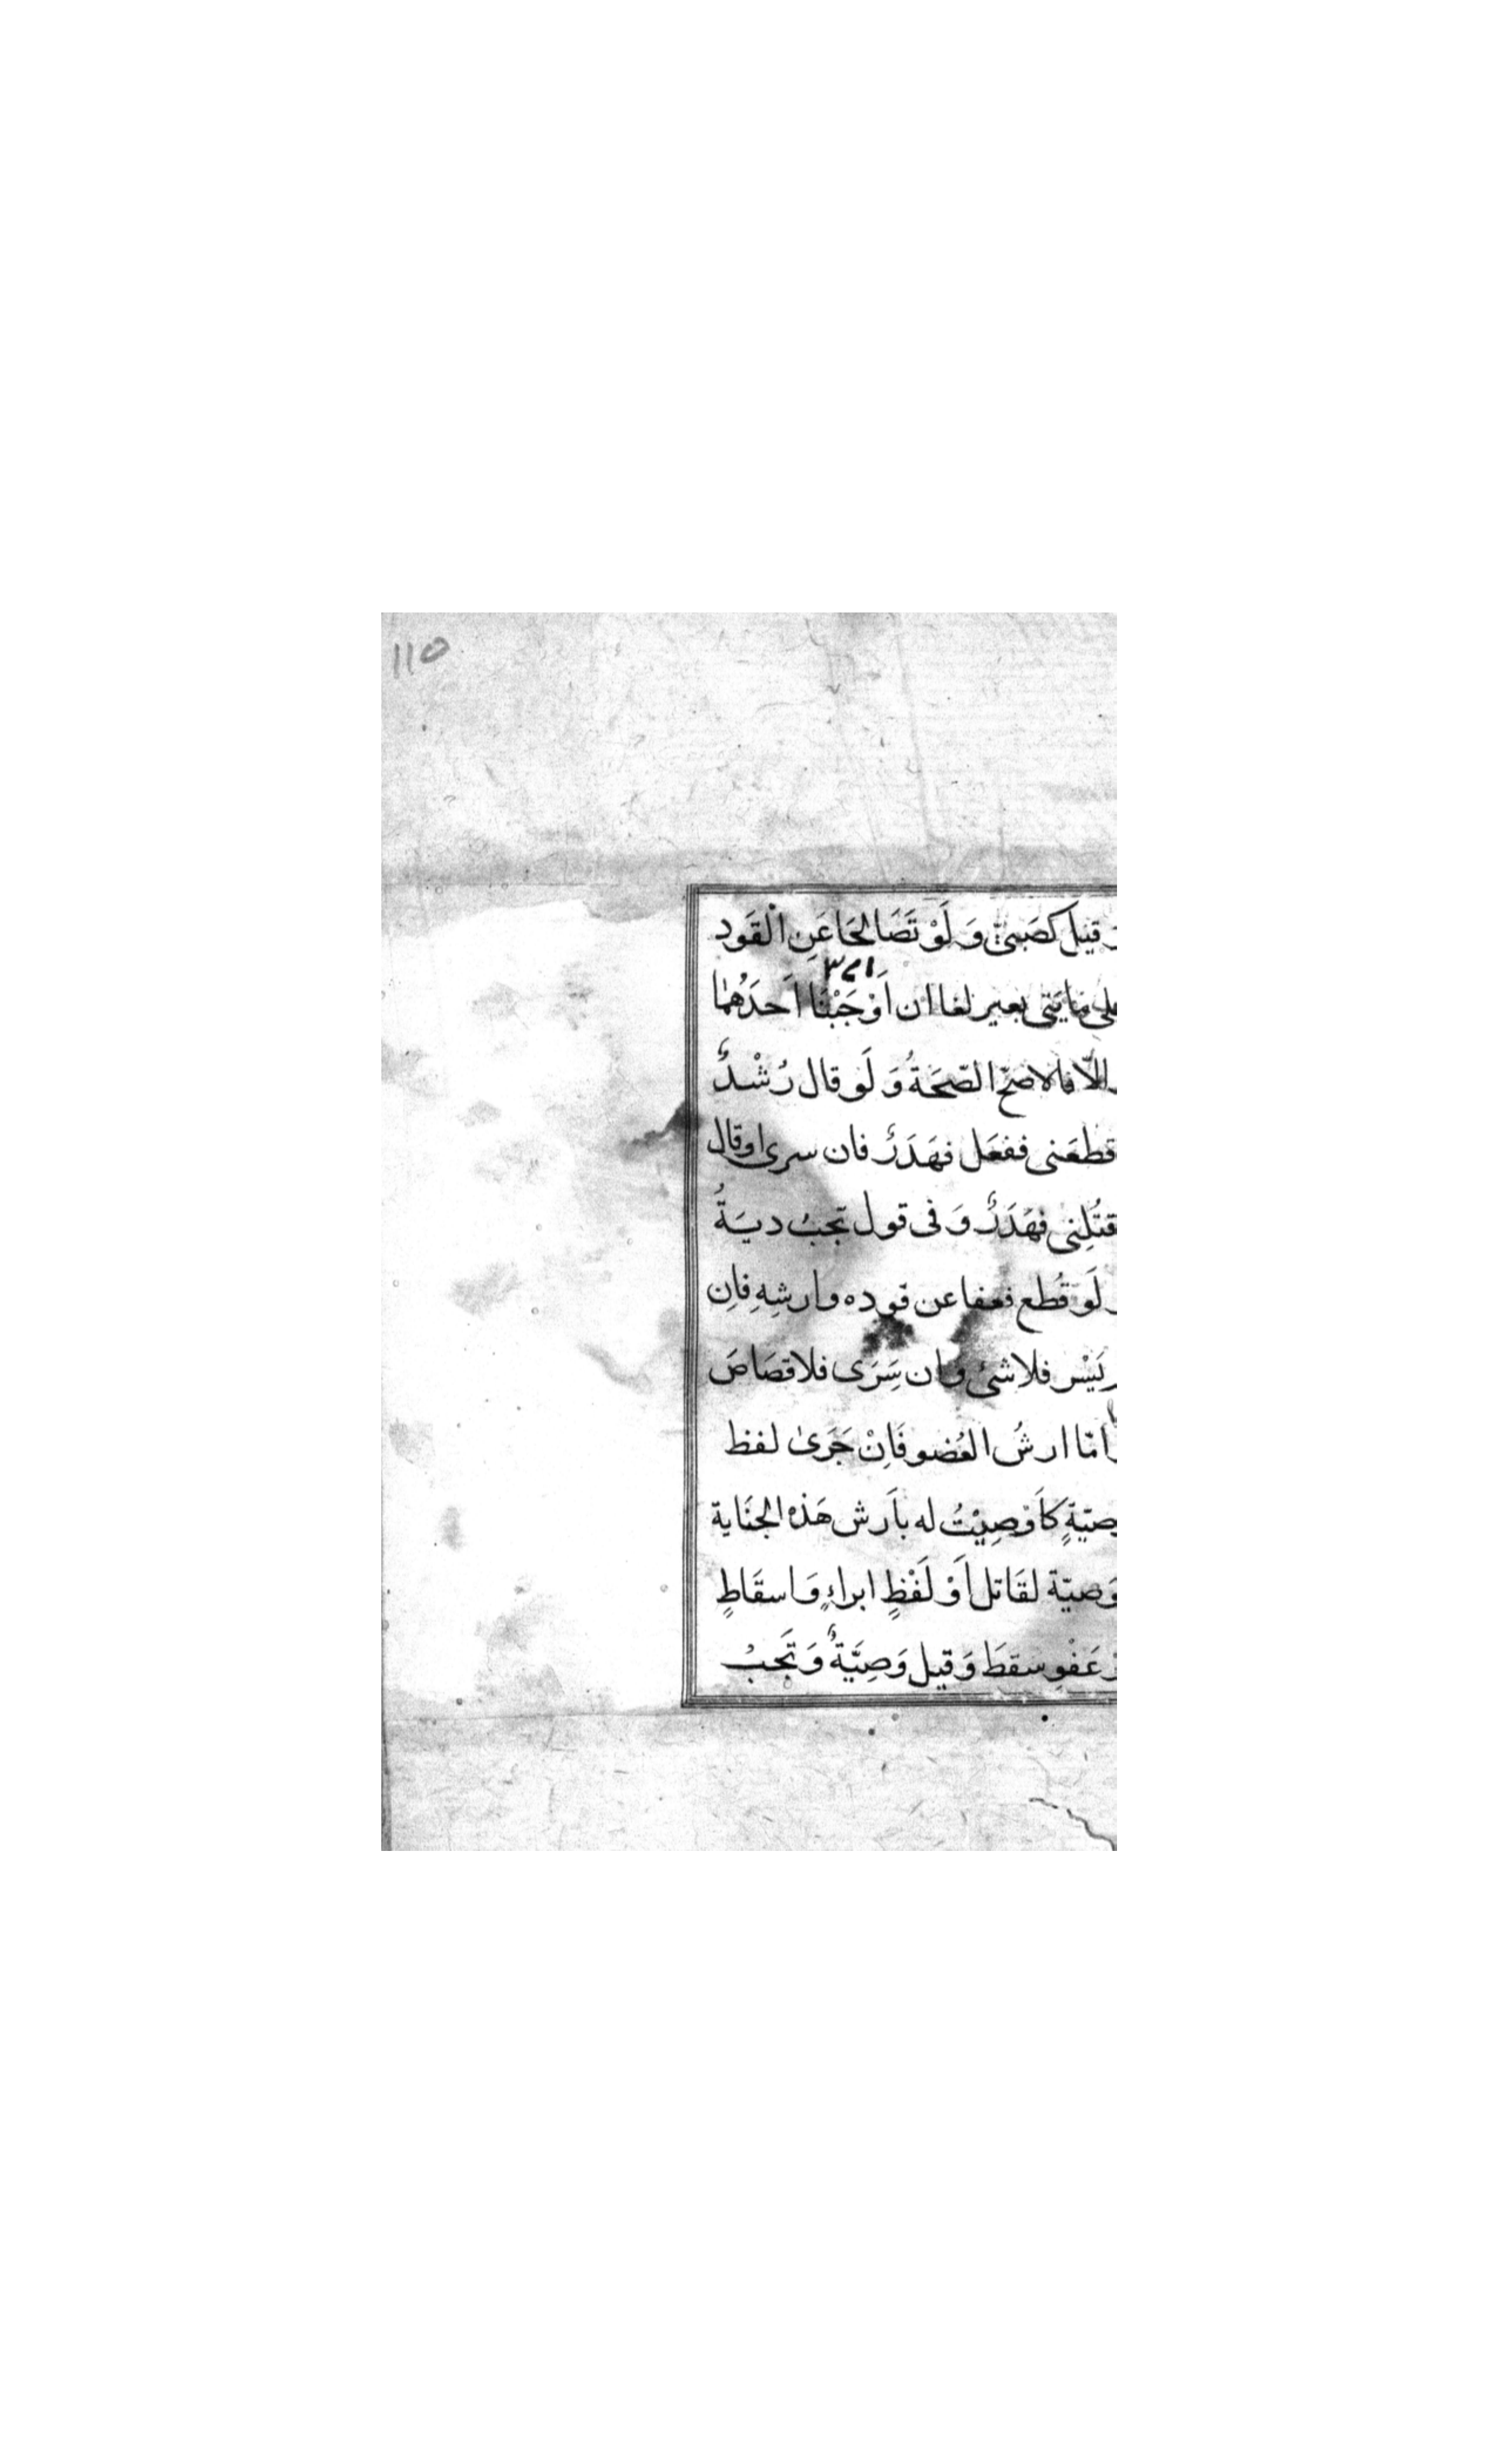 ١١٥
وقيل كصَبىٍّ وَلَوْ تَصَالَحَا عَنِ الْقَوَد
على مايتى بعير لغا ان اَوْجَبْنَا اَحدَهُمَا
والاّ فالاصحّ الصّحَةُ وَلَو قال رُشْدٌ
اقطعَنى ففعَل فهَدَرٌ فان سرى اوقال
اقتُلنِى فهَدَرٌ وَفى قول تجبُ ديَةٌ
ولَو قُطع فعفا عن قوده وارشِهِ فاِن
لم يَسْر فلاشئ وان سَرَى فلا قصَاصَ
وامّا ارشُ العُضو فَاِنْ جَرَىٰ لفظ
وصيّةٍ كاَوْصيْتُ له باَرش هَذه الجنَاية
فوَصيّة لقَاتل اَوْ لَفْظِ ابراءٍ وَاسقَاطٍ
اوْ عَفْوٍ سقطَ وَقيل وَصِيَّةٌ وَتَجبُ